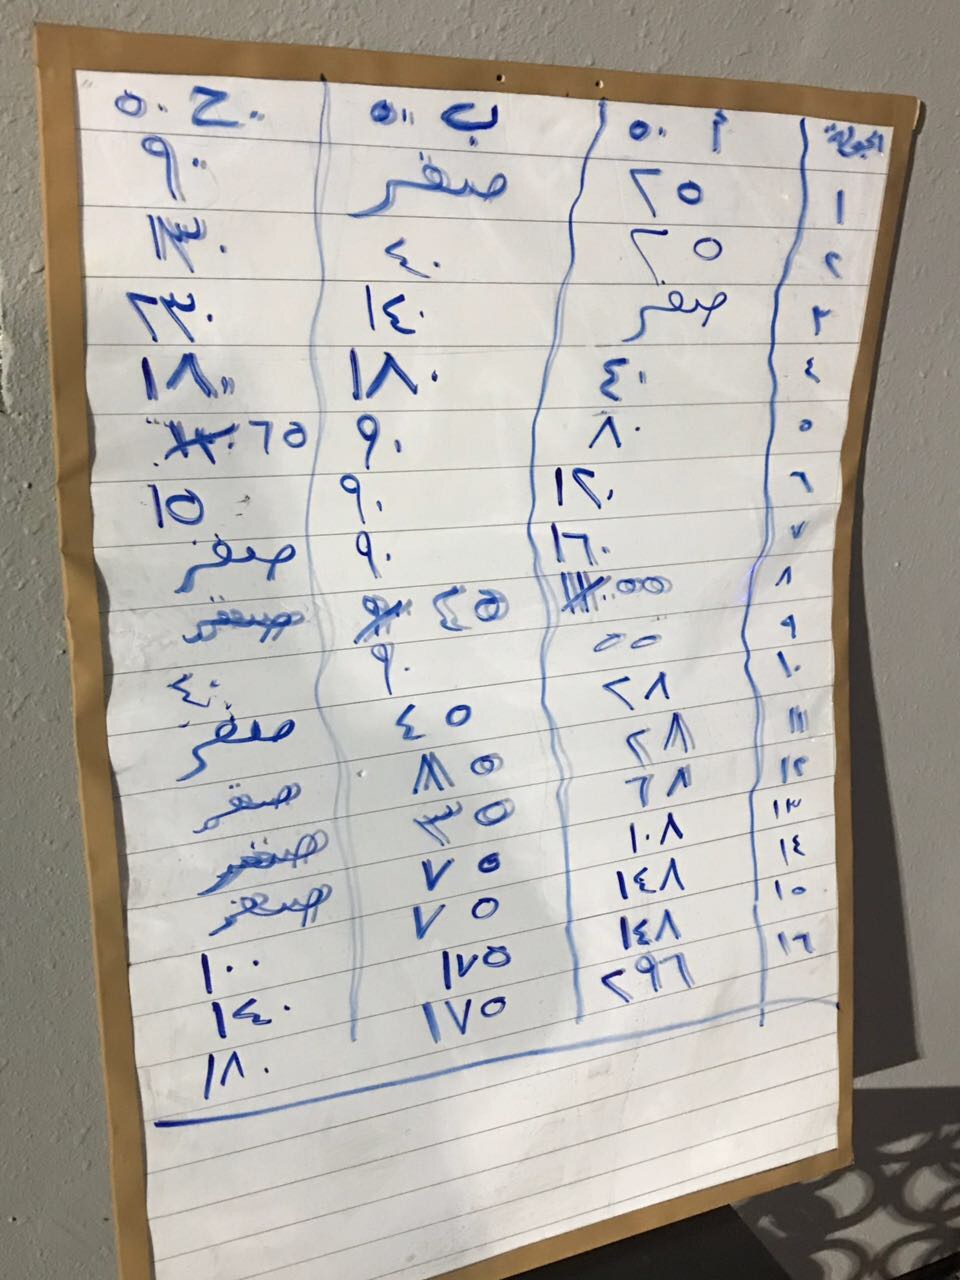 الجولة أ ٥٠ ب ٥٠ ج ٥٠
١ ٢٥ صفر ٩٠
٢ ٢٥ ٤٠ ١٣٠
٣ صفر ١٤٠
٤ ٤٠ ١٨٠ ١٨٠
٥ ٨٠ ٩٠ ٦٥
٦ ١٢٠ ٩٠ ١٥
٧ ١٦٠ ٩٠ صفر
٨ ٥٥ ٤٥ صفر
٩ ٥٥ ٩٠ ٤٠
١٠ ٢٨ ٤٥ صفر
١١ ٢٨ صفر
١٢ ٦٨ ٣٥ صفر
١٣ ١٠٨ ٧٥ صفر
١٤ ١٤٨ ٨٥ ١٠٠
١٥ ١٤٨ ١٧٥ ١٤٠
١٦ ٢٩٦ ١٨٥ ١٨٠